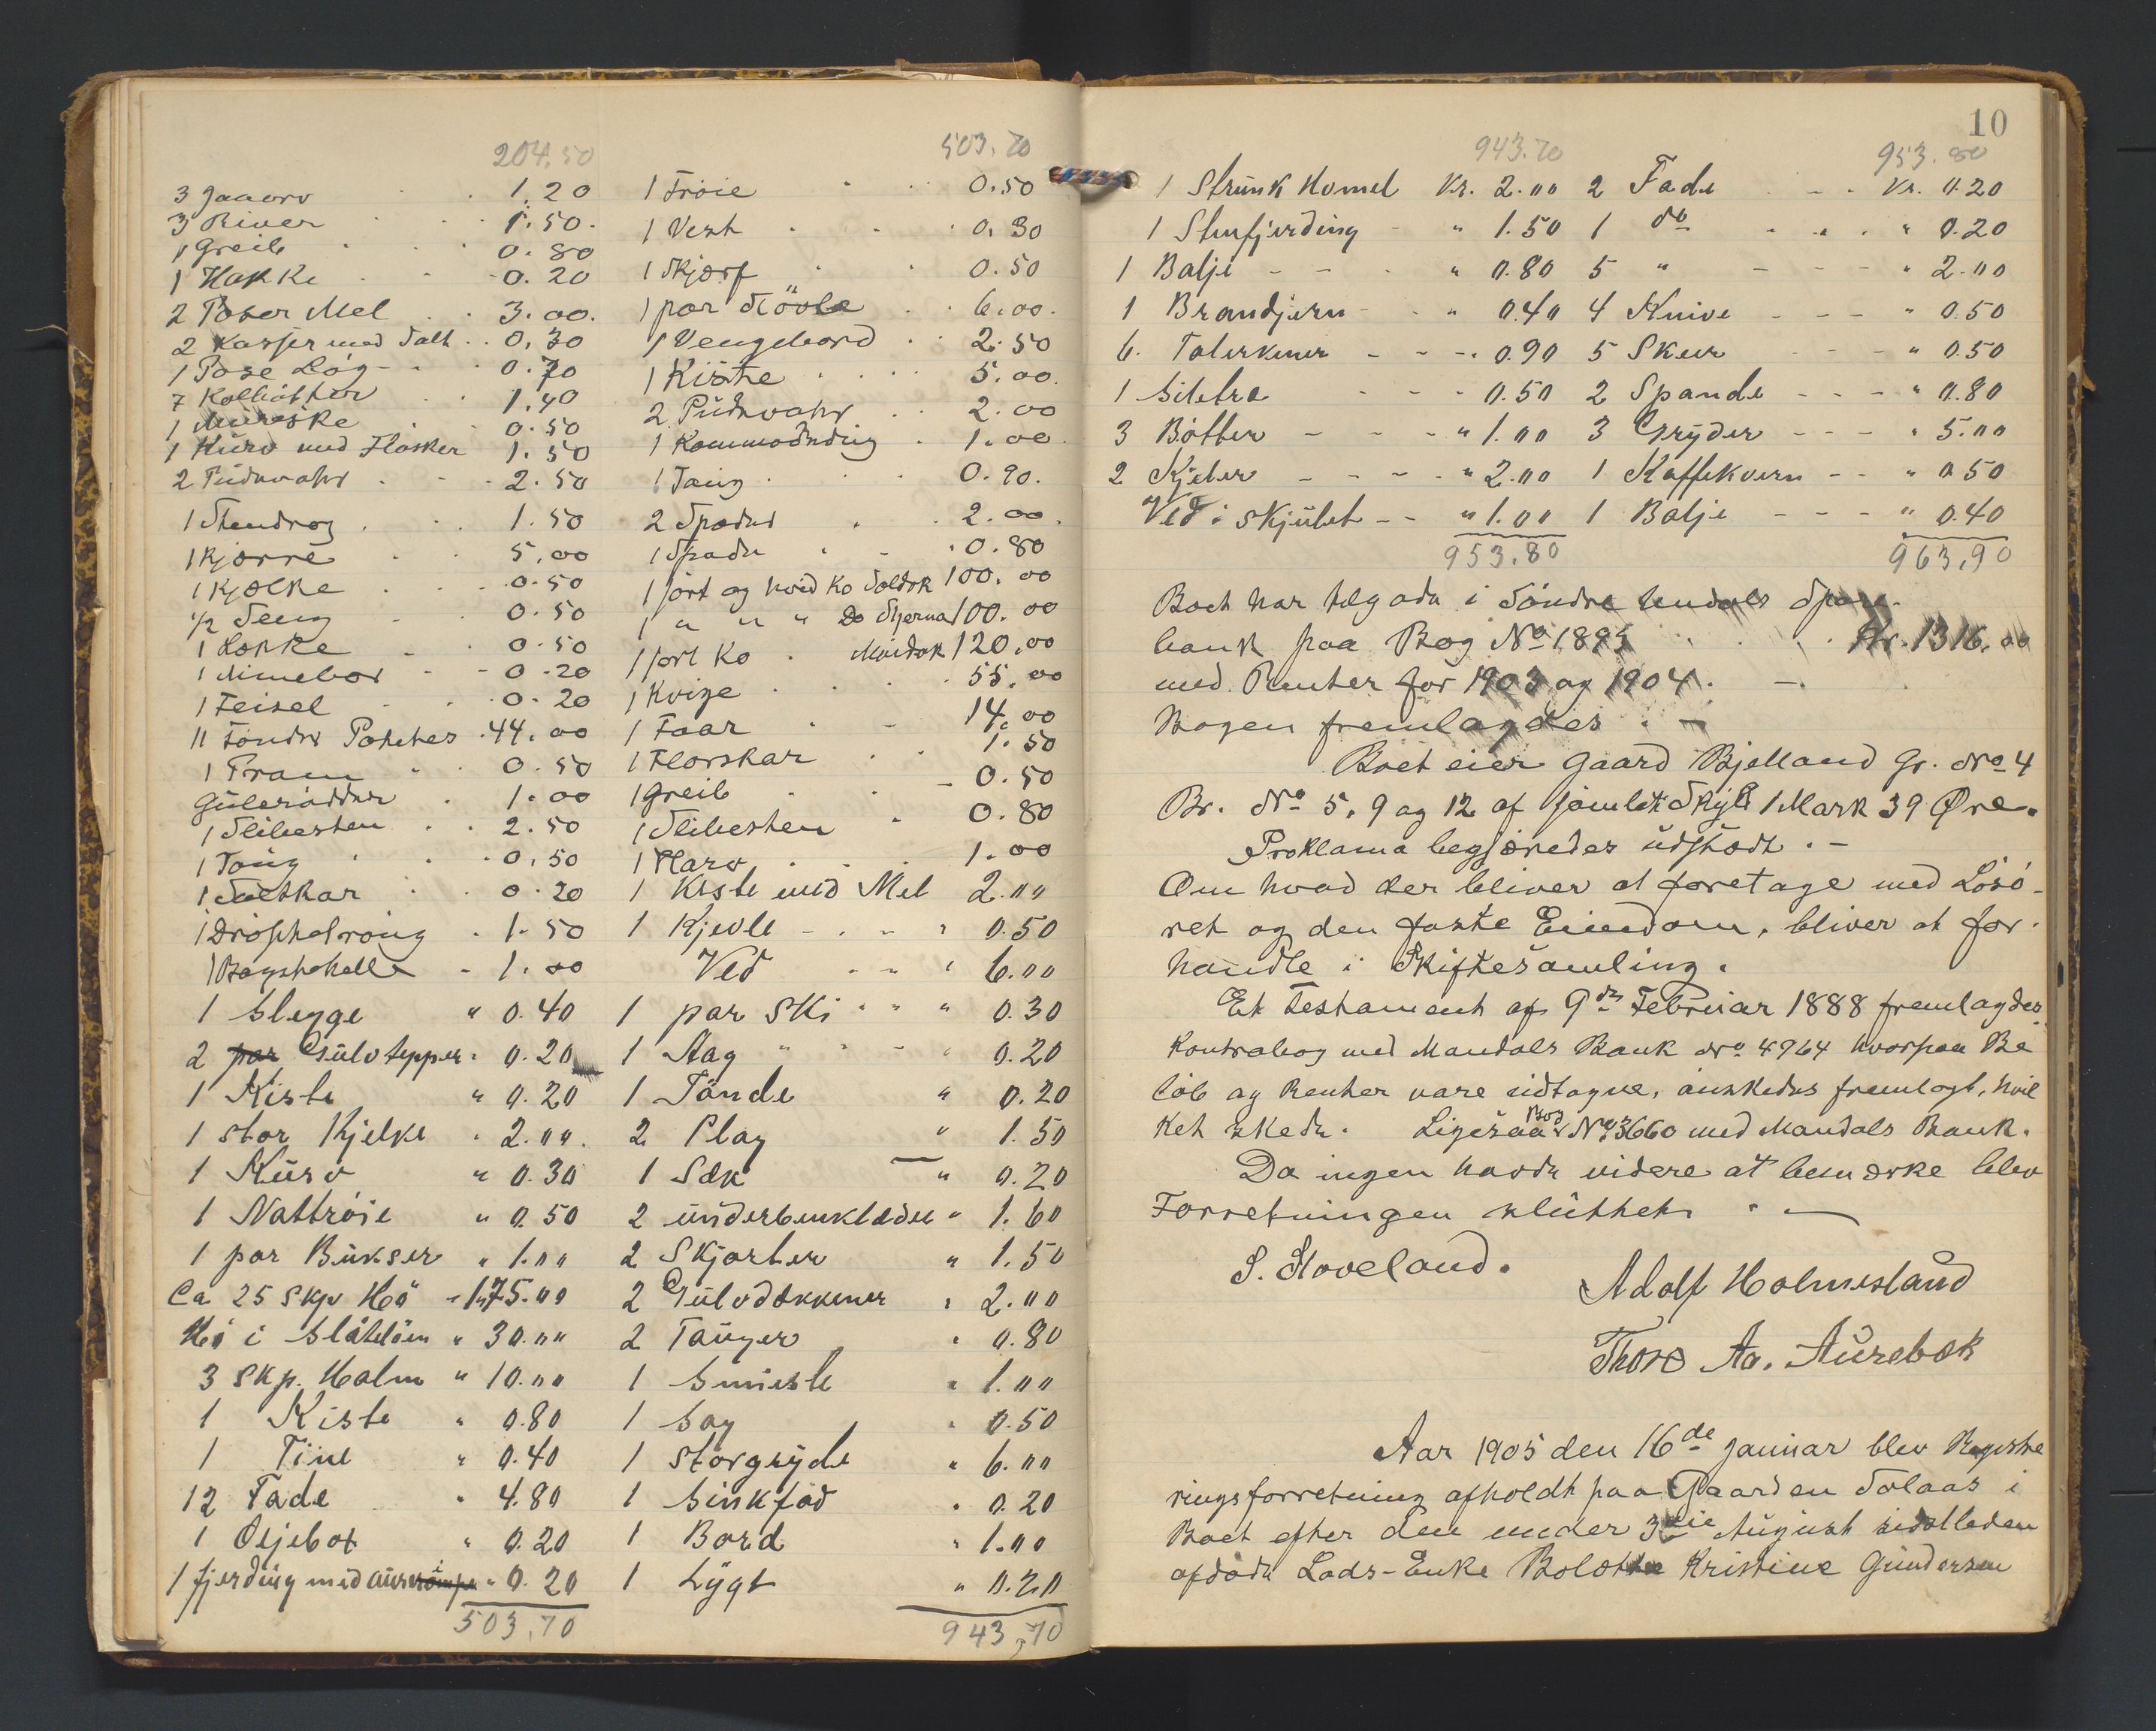 204.50
3
1.20
3 River 1.50
1 Greib 0.80
1 Hakke 0.20
2 Poser Mel 3.00
2 Kasser med Salt 0.30
1 Pose Løg 0.70
7 1.40
1 0.50
1 Kurv med Flasker 1.50
2 Pudevahr 2.50
1 Stendrog 1.50
1 Kjærre 5.00
1 Kjælke 0.50
1/2 Seng 0.50
1 0.50
1 0.20
1 Feisel 0.20
11 Tønder Poteter 44.00
1 Pram 0.50
Guleródder 1.00
1 Slibesten 2.50
1 Toug 0.50
1 Saltkar 0.20
1 1.50
1 1.00
1 Slegge " 0.40
2 par Gulvtepper " 0.20
1 Kiste " 0.20
1 stor Kjelke " 2.00
1 Kurv " 0.30
1 Nattróie " 0.50
1 par Bukser " 1.00
Ca 25 Skp Hö " 175.00
Hö i " 30.00
3 Skp. Halm " 10.00
1 Kiste " 0.80
1 Tine " 0.40
12 Fade " 4.80
1 " 0.20
1 fjerding med " 0.20
503.70
503.70
1 Tróie 0.50
1 Vest 0.30
1 Skjærf 0.50
1 par Stövle 6.00
1 Vengebord 2.50
1 Kiste 5.00
2 Pudevahr 2.00
1 1.00
1 Taug 0.90
2 Spader 2.00
1 Spade 0.80
1 sort og hvid Ko 100.00
1 " " " Do Stjerna 100.00
1 sort Ko 120.00
1 Kvige 55.00
1 Faar 14.00
1 1.50
1 Greib 0.50
1 Slibesten 0.80
1 Harv 1.00
1 Kiste med Mel 2.00
1 Kjevle 0.50
Ved 6.00
1 par Ski " 0.30
1 Aag 0.20
1 Tönde " 0.20
2 Plag " 1.50
1 Sæk " 0.20
2 underbenklæder " 1.60
2 Skjorter " 1.50
2 Gulvdækkener " 2.00
2 Tauger " 0.80
1 " 1.00
1 Sag " 0.50
1 Storgryde " 6.00
1 Sinkfad " 0.20
1 Bord " 1.00
1 Lygt " 0.20
943.70
10
943.70
1 Strunk Homel Kr. 2.00
1 " 1.50
1 Balje " 0.80
1 Brandjern " 0.40
6 Talerkener " 0.90
1 0.50
3 Bótter " 1.00
2 Kjeler " 2.00
Ved i Skjulet " 1.00
953.80
953.80
2 Fade Kr. 0.20
1 do " 0.20
5 " " 2.00
4 Knive " 0.50
5 Skeer " 0.50
2 Spande " 0.80
3 Gryder " 5.00
1 Kaffekvern " 0.50
1 Balje " 0.40
963.90
Boet har i Söndre Undals Spare-
bank paa Bog No 1895 Kr. 1316.00
med Renter for 1903 og 1904. —
Bogen fremlagdes. —
Boet eier Gaard Bjelland Gr. No 4
Br. No 5, 9 og 12 af samlet Skyld 1 Mark 39 Øre.
Proklama begjæredes udstödt. —
Om hvad der bliver at foretage med Lösö-
ret og den faste Eiendom, bliver at for-
handle i Skiftesamling.
Et Testament af 9de Februar 1888 fremlagdes.
Kontrabog med Mandals Bank No 4964 hvorpaa Be
löb og Renter vare udtagne, önskedes fremlagt, hvil
ket skede. Ligesaa Bog No 3660 med Mandals Bank.
Da ingen havde videre at bemærke blev
Forretningen sluttet. —
S. Hoveland.
Adolf Holmesland
Thore Aa. Aurebæk
Aar 1905 den 16de Januar blev Registre
ringsforretning afholdt paa Gaarden Solaas i
Boet efter den under 3die August sidstleden
afdöde Lods-Enke Bolette Kristine Gundersen